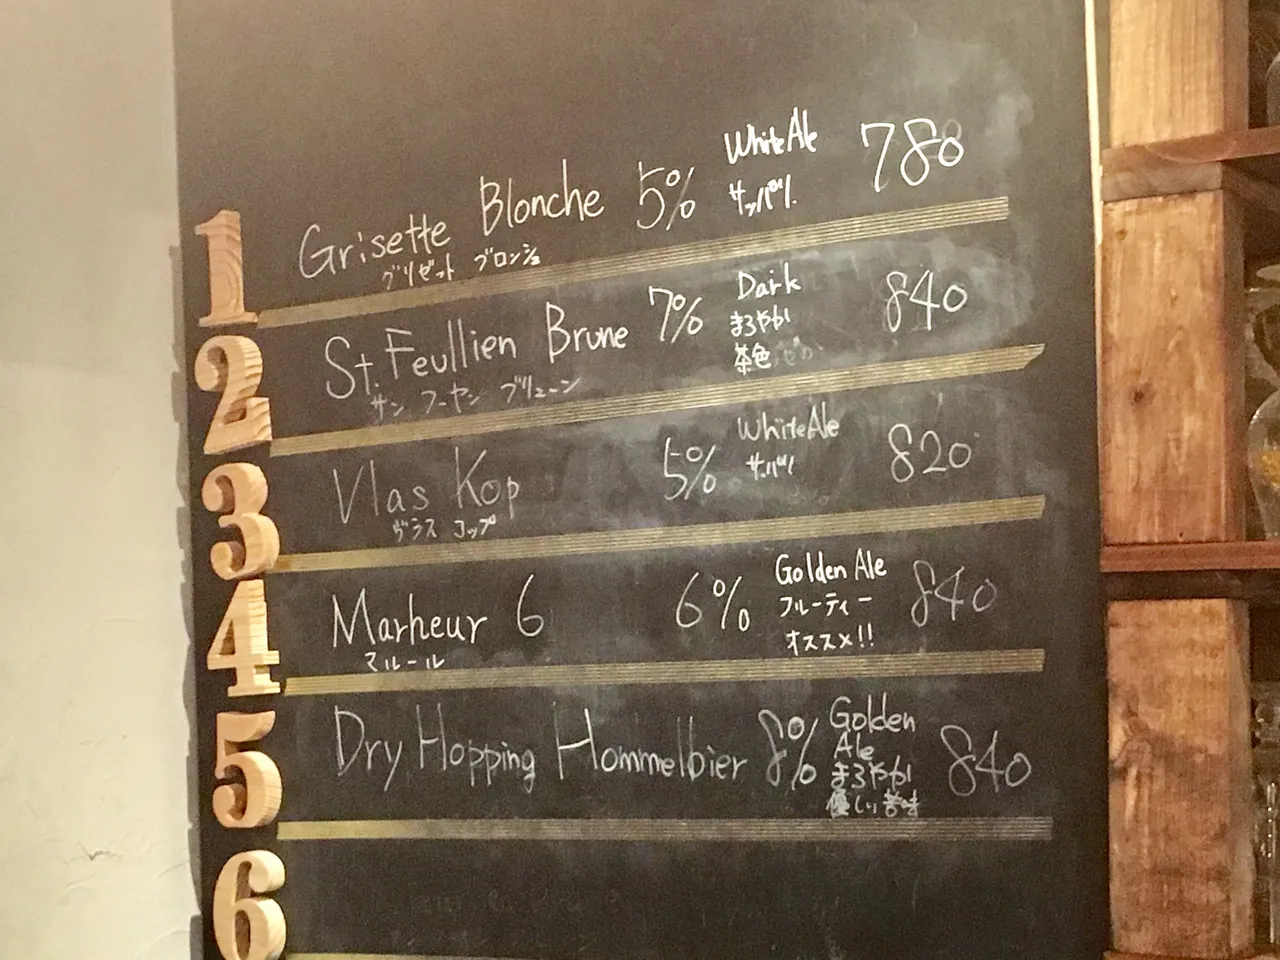 1 Grisette Blonche 5% White Ale 780
グリゼット ブロンシュ サッパリ
2 St. Feullien Brune 7% Dark 840
サン フーヤン ブリューン まろやか
茶色
3 Vlas Kop 5% White Ale 820
ヴラス コップ サッパリ
4 Marheur 6 6% Golden Ale 840
マルール フルーティー
オススメ!!
5 Dry Hopping Hommelbier 8% Golden 840
Ale
まろやか
優しい苦味
6